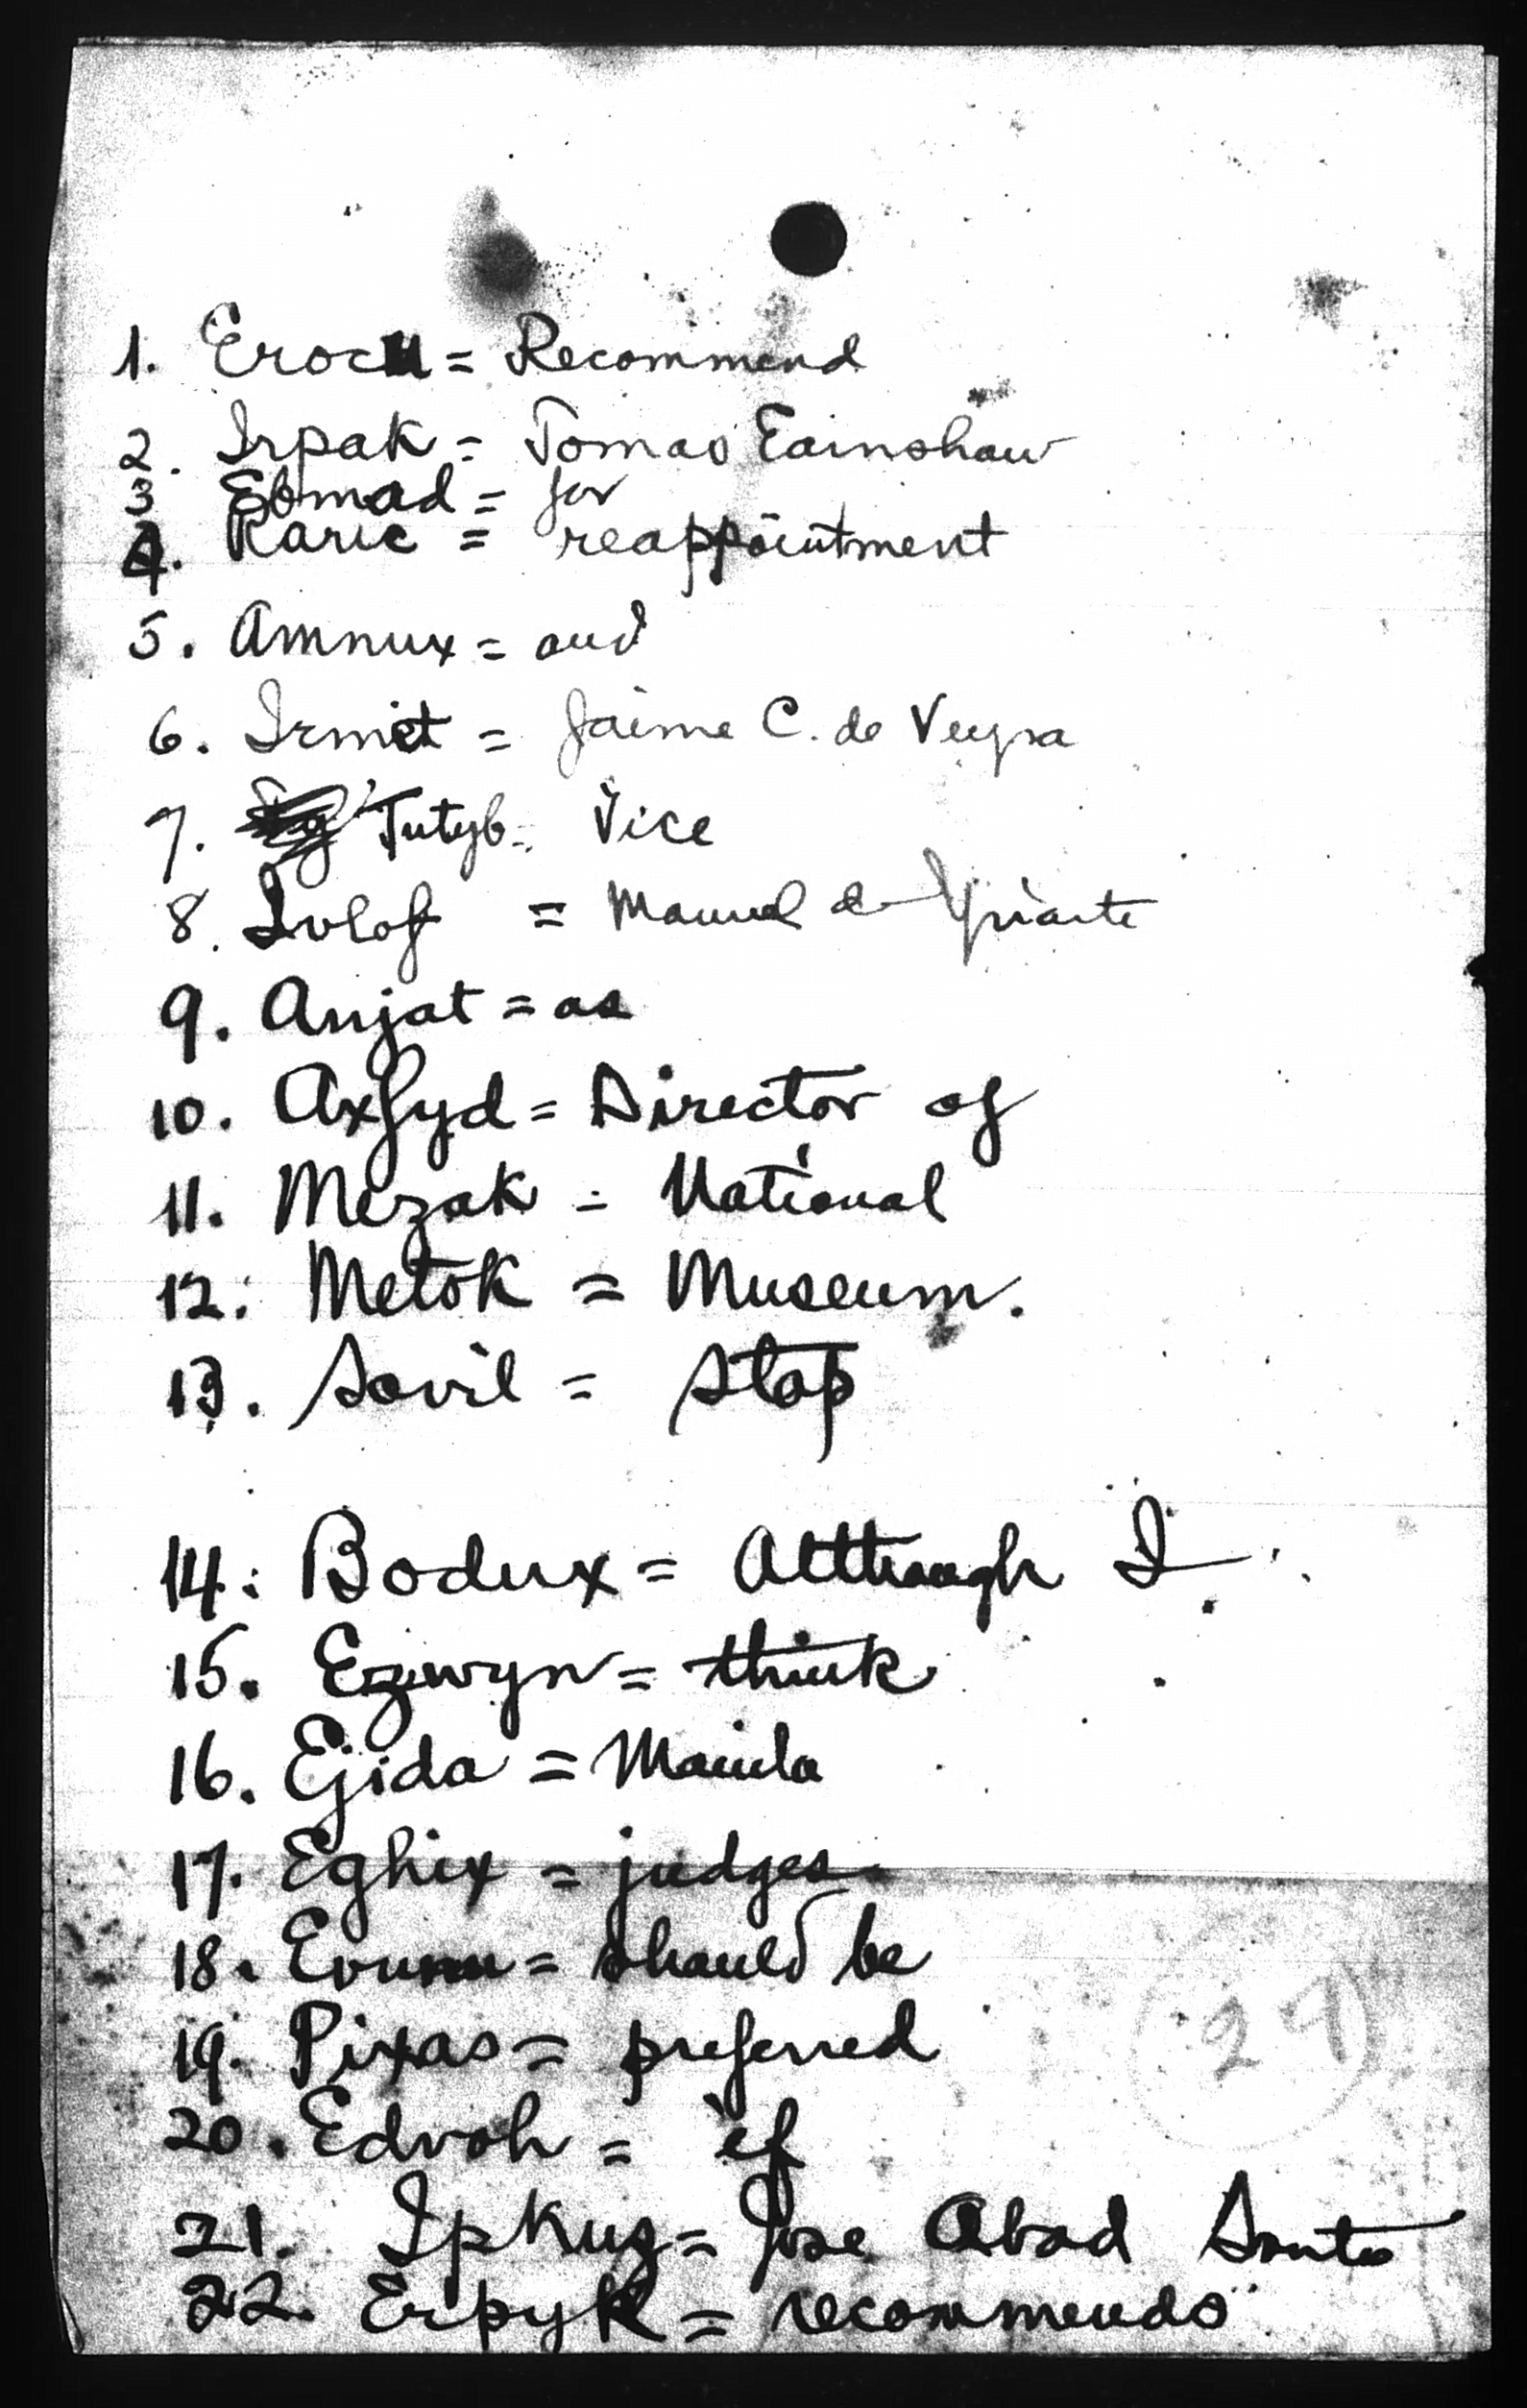 1. Erocu = Recommend
2. Irpak = Tomas Earnshaw
3 Ebmad = for
4. Raric = reappointment
5. Amnux = and
6. Irmet = Jaime C. de Veyra
7. Tutyb = Vice
8. Ivlof = Manuel de Yriarte
9. Anjat = as
10. Axfyd = Director of
11. Mezak = National
12. Metok = Museum.
13. Sovil = Stop
14. Bodux = Although I
15. Ezwyn = think
16. Ejida = Manila
17. Eghix = judges
18. = should be
19. Pixas = preferred
20. Edvoh = if
21. Ipkug = Jose Abad Santos
22. Erpyk = recommends
29